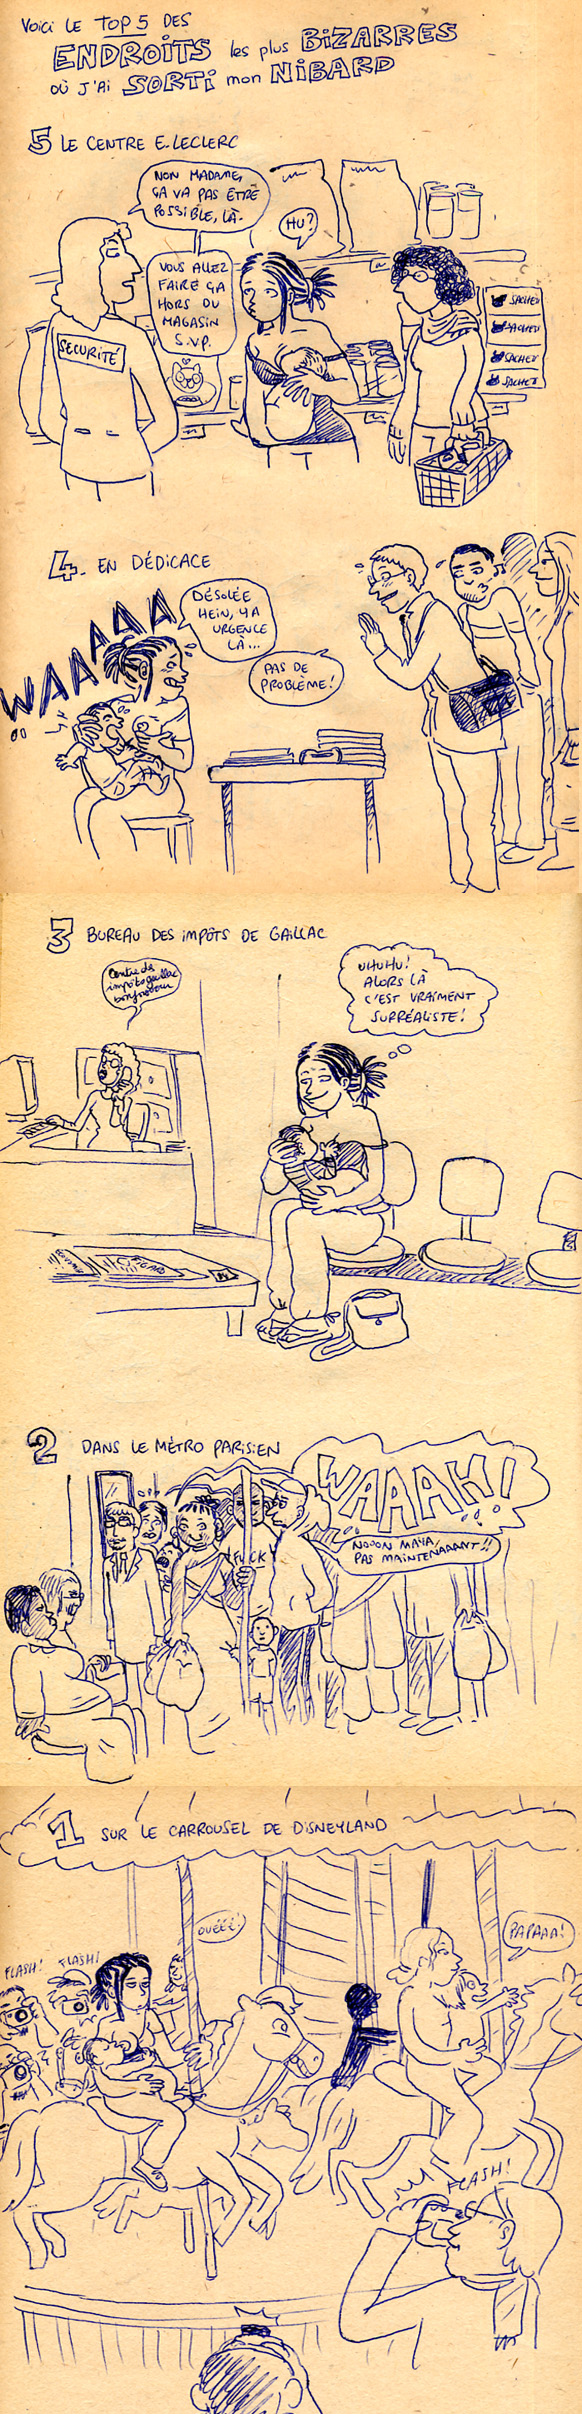 Voici LE TOP 5 DES
ENDROITS les plus BIZARRES
OÙ J'AI SORTI mon NIBARD
5 LE CENTRE E.LECLERC
NON MADAME,
ÇA VA PAS ÊTRE
POSSIBLE, LÀ.
HU?
VOUS ALLEZ
FAIRE ÇA
HORS DU
MAGASIN
S.V.P.
SECURITÉ
SACHET
SACHET
SACHET
SACHET
4. EN DÉDICACE
WAAAAAA
DÉSOLÉE
HEIN, Y A
URGENCE
LÀ...
PAS DE
PROBLÈME!
3 BUREAU DES IMPÔTS DE GAILLAC
Centre des
impôts gaillac
bonjour
UHUHU!
ALORS LÀ
C'EST VRAIMENT
SURRÉALISTE!
2 DANS LE MÉTRO PARISIEN
WAAAH!
NOOON MAYA,
PAS MAINTENAAANT!!
FUCK
1 SUR LE CARROUSEL DE DISNEYLAND
OUÉÉÉ!
PAPAAA!
FLASH!
FLASH!
FLASH!